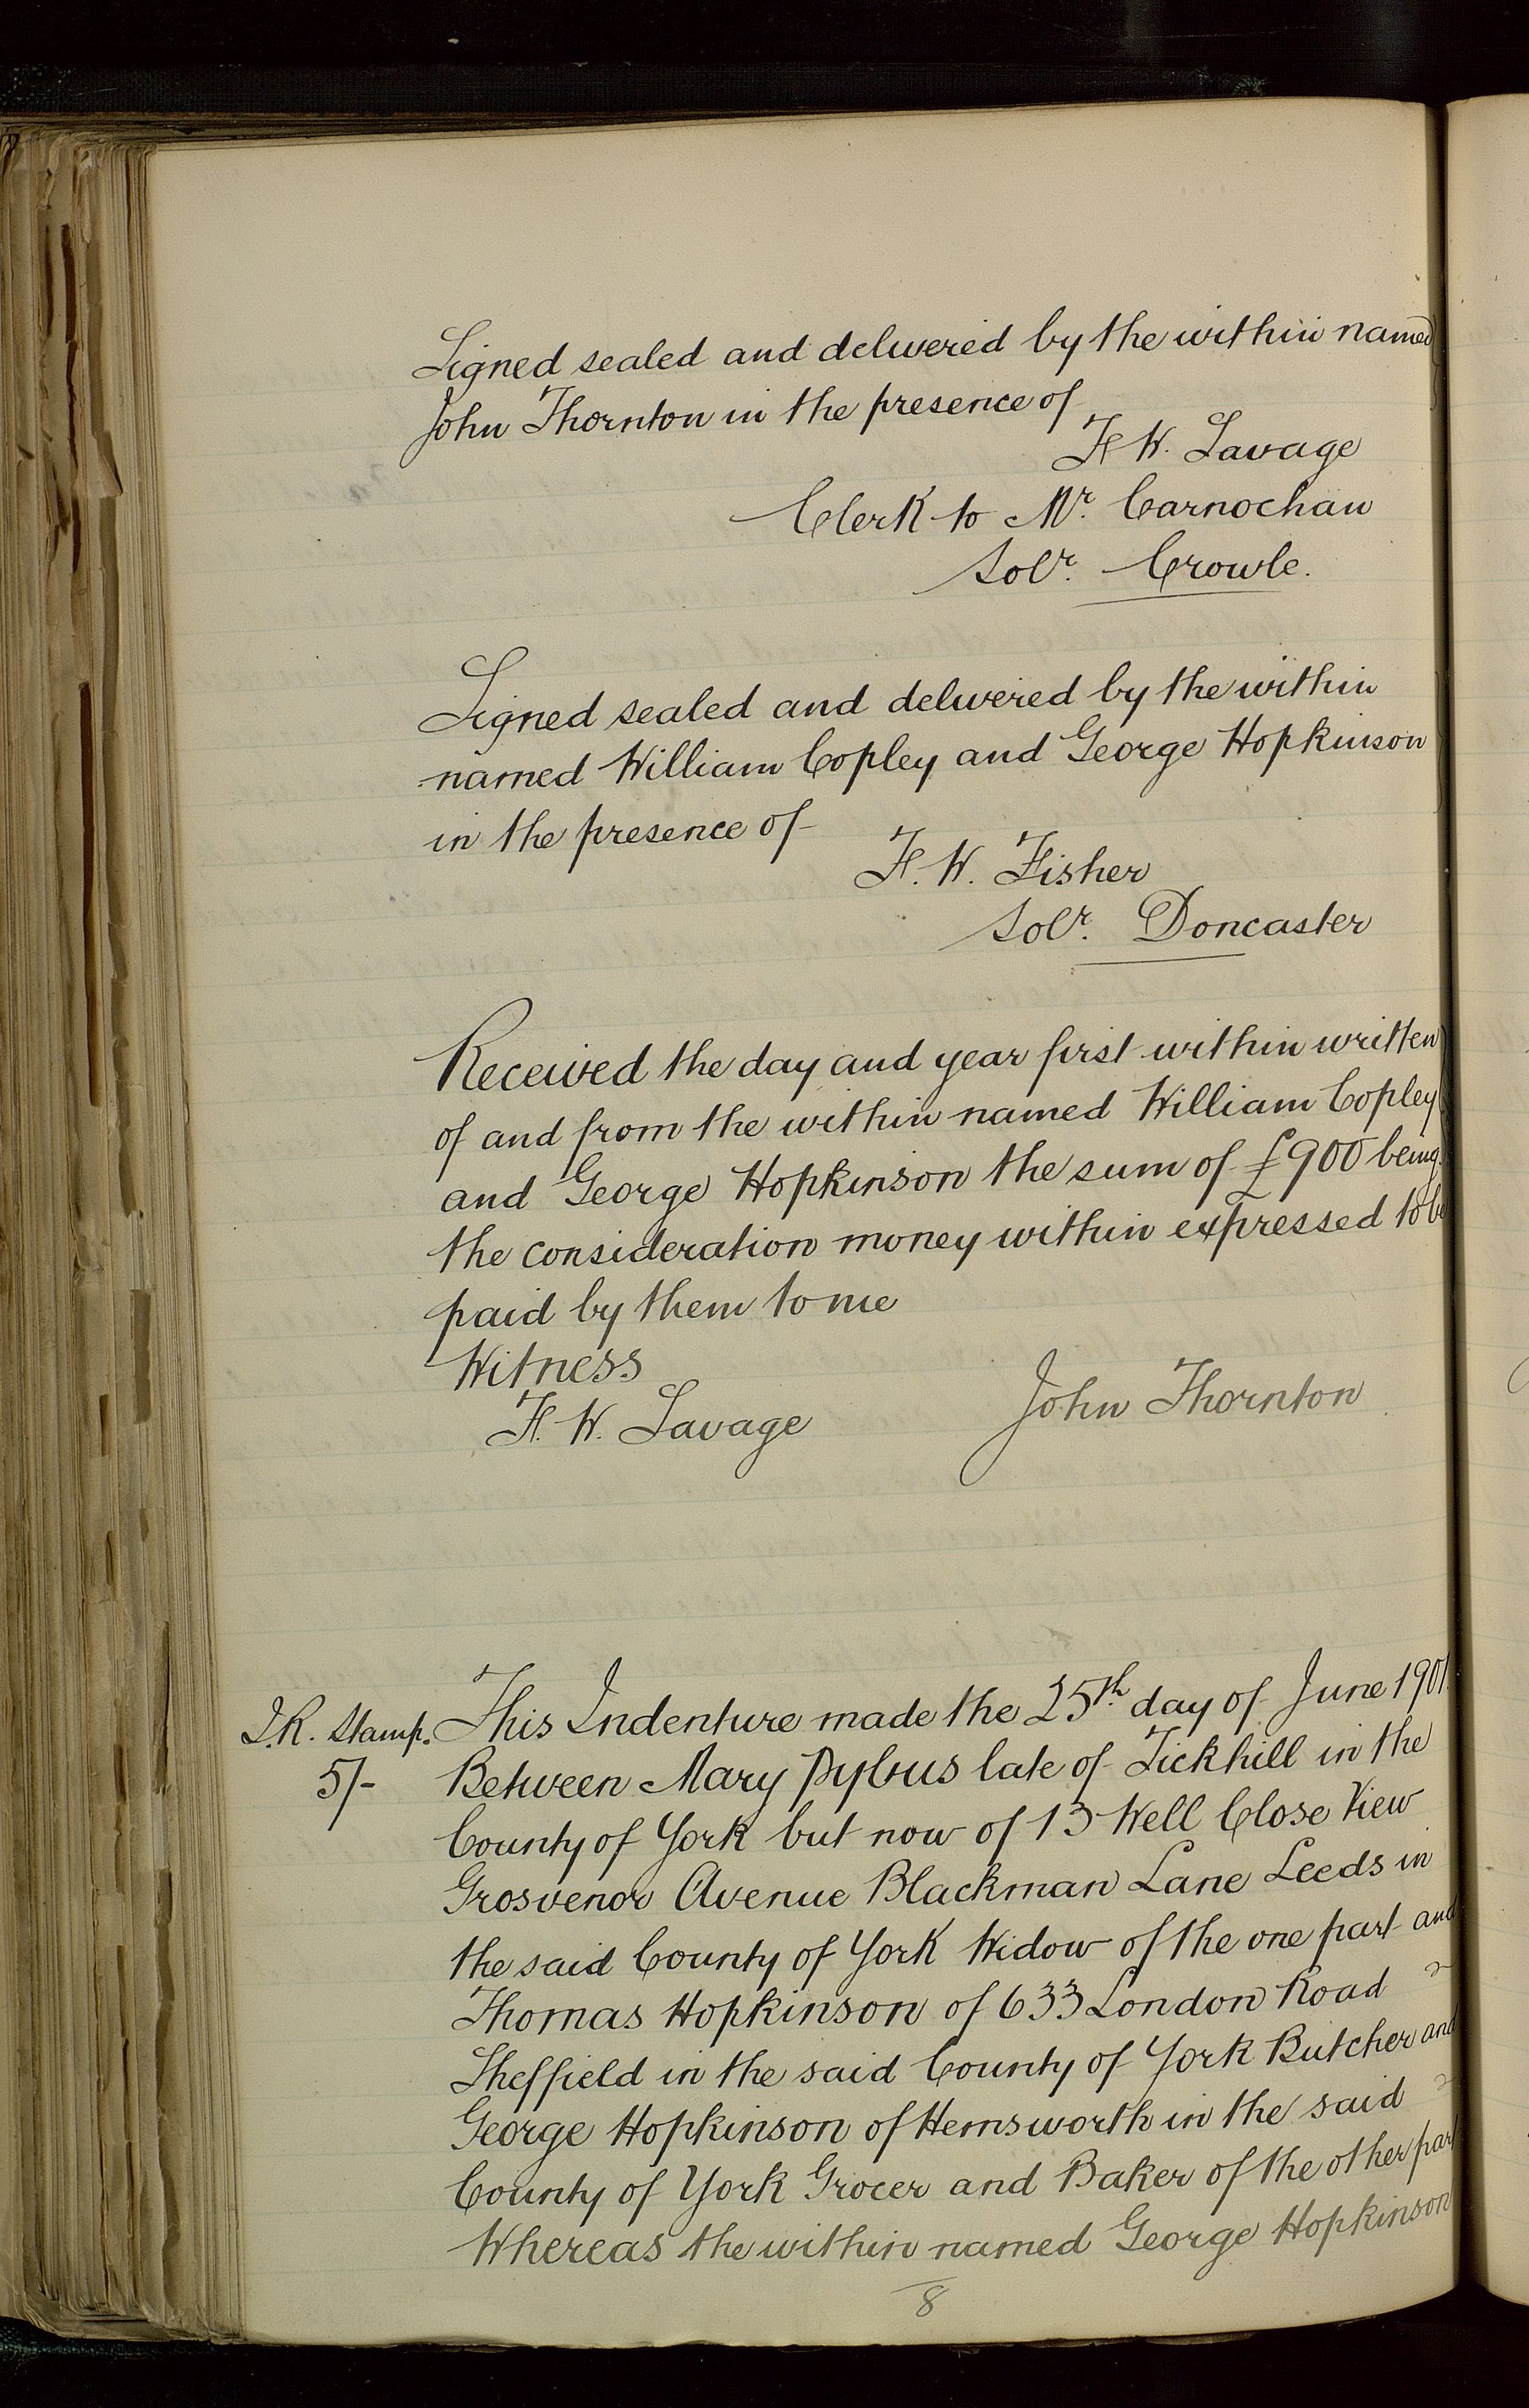 Signed sealed and delivered by the within named
John Thornton in the presence of
F. W. Savage
Clerk to Mr. Carnochan
Solr. Crowle.
Signed sealed and delivered by the within
named William Copley and George Hopkinson
in the presence of
F. W. Fisher
Solr. Doncaster
Received the day and year first within written
of and from the within named William Copley
and George Hopkinson the sum of £900 being
the consideration money within expressed to be
paid by them to me
Witness
F. W. Savage John Thornton
I.R. Stamp. This Indenture made the 25th day of June 1901
5/- Between Mary Pybus late of Tickhill in the
County of York but now of 13 Well Close View
Grosvenor Avenue Blackman Lane Leeds in
the said County of York Widow of the one part and
Thomas Hopkinson of 633 London Road
Sheffield in the said County of York Butcher and
George Hopkinson of Hemsworth in the said
County of York Grocer and Baker of the other part
Whereas the within named George Hopkinson
8